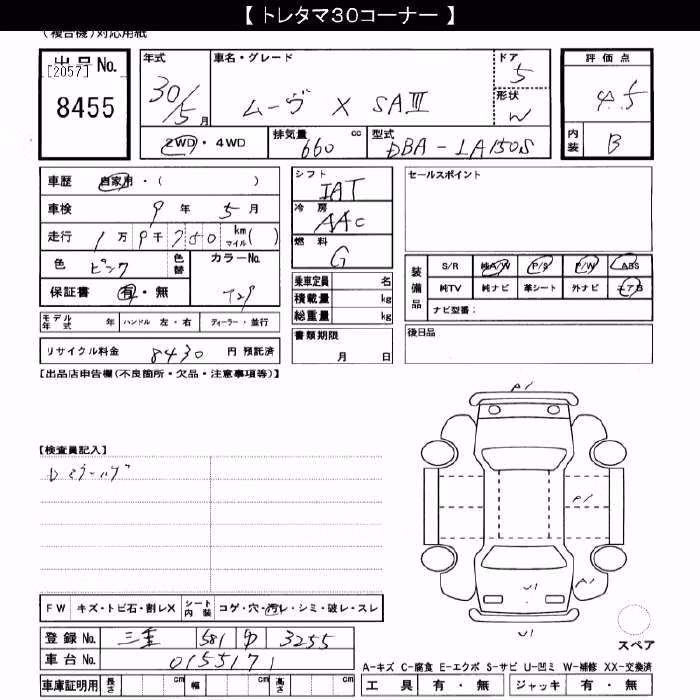 【 トレタマ30コーナー 】
(複合機)対応用紙
出品No.
[2057]
8455
年式
30/5月
車名・グレード
ムーヴ X SAⅢ
ドア
5
形状
W
評価点
4.5
内装
B
2WD・4WD
排気量
660 cc
型式
DBA-LA150S
車歴 自家用・( )
車検 9年 5月
走行 1万9千750 km マイル( )
色 ピンク
色替
カラーNo.
T29
保証書 有・無
モデル年式 年 ハンドル 左・右 ディーラー・並行
リサイクル料金 8430円 預託済
シフト
IAT
冷房
AAC
燃料
G
乗車定員 名
積載量 kg
総重量 kg
書類期限
月 日
セールスポイント
装備品
S/R 純A/W P/S P/W ABS
純TV 純ナビ 革シート 外ナビ エアB
ナビ型番:
後日品
【出品店申告欄(不良箇所・欠品・注意事項等)】
【検査員記入】
A1
A1
A1
U1
U1
FW キズ・トビ石・割レX シート内装 コゲ・穴・汚レ・シミ・破レ・スレ
登録No. 三重 581 ゆ 3255
車台No. 0155171
車庫証明用 長さ cm 幅 cm 高さ cm
スペア
A-キズ C-腐食 E-エクボ S-サビ U-凹ミ W-補修 XX-交換済
工具 有・無 ジャッキ 有・無